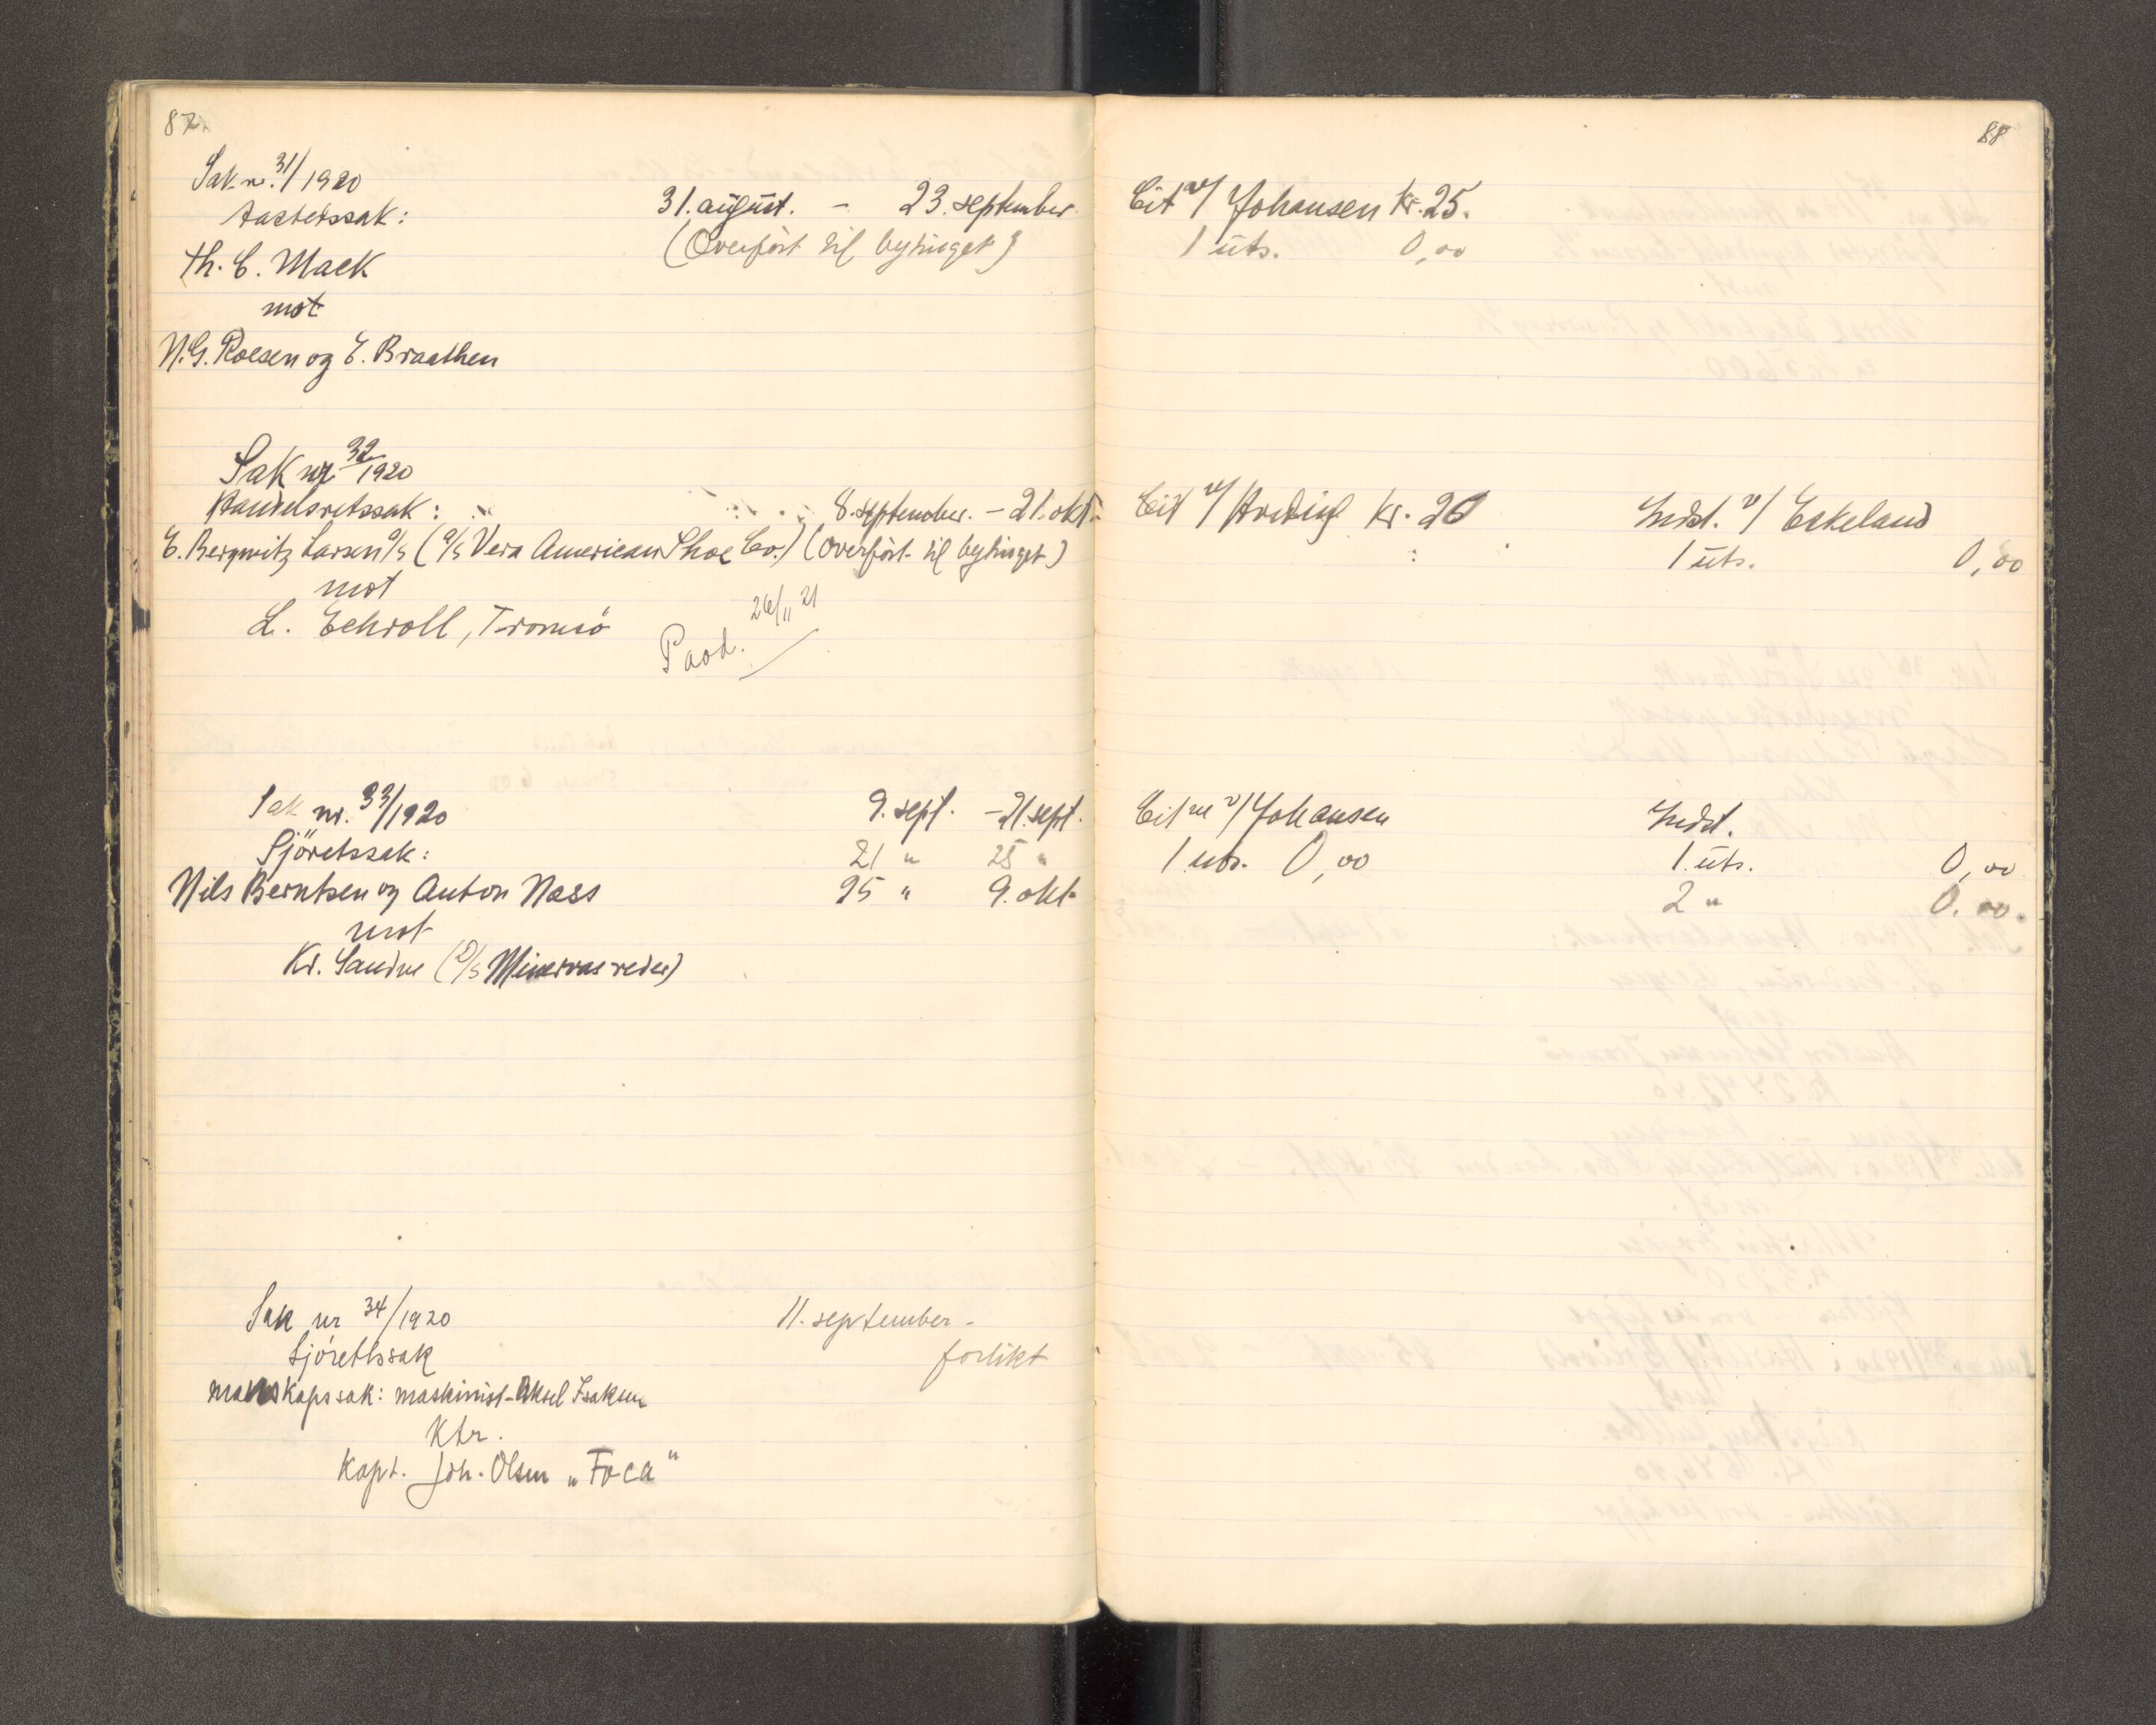 87
Sak nr. 31/1920
Aastetssak:
31. august. - 23. september
(Overført til bytinget)
Th. C. Mack
mot
N.G. Roesen og E. Braathen
Sak nr 32/1920
Handelsretssak:
8. september. - 21. okt.
E. Bergwitz Larsen A/S (A/S Vera American Shoe Co.) (Overført til bytinget)
mot
L. Echroll, Tromsö
26/11 21
Sak nr. 33/1920
9. sept. - 21. sept.
Sjöretssak:
21 " 25 "
Nils Berntsen og Anton Nass
25 " 9. okt
mot
Kr. Sandve (D/S Minervas reder)
Sak nr 34/1920
11. september -
Sjórettssak
forlikt
manskapssak: maskinist Aksel Isaksen
Ktr.
Kapt. Joh. Olsen „Foca"
88
Cit v/ Johansen kr. 25.
1 uts. 0,00
Cit v/ kr. 20
Indst. v/ Eekeland
1 uts. 0,00
Cit v/ Johansen
Indst.
1 uts. 0,00
1. uts. 0,00
2 " 0.00.